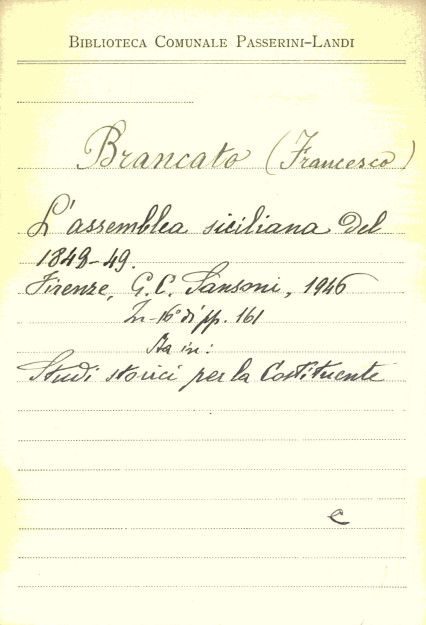 BIBLIOTECA COMUNALE PASSERINI-LANDI
Brancato (Francesco)
L'assemblea siciliana del
1848-49.
Firenze, G. C. Sansoni, 1946
In-16° di pp. 161
Sta in:
Studi storici per la Costituente
C